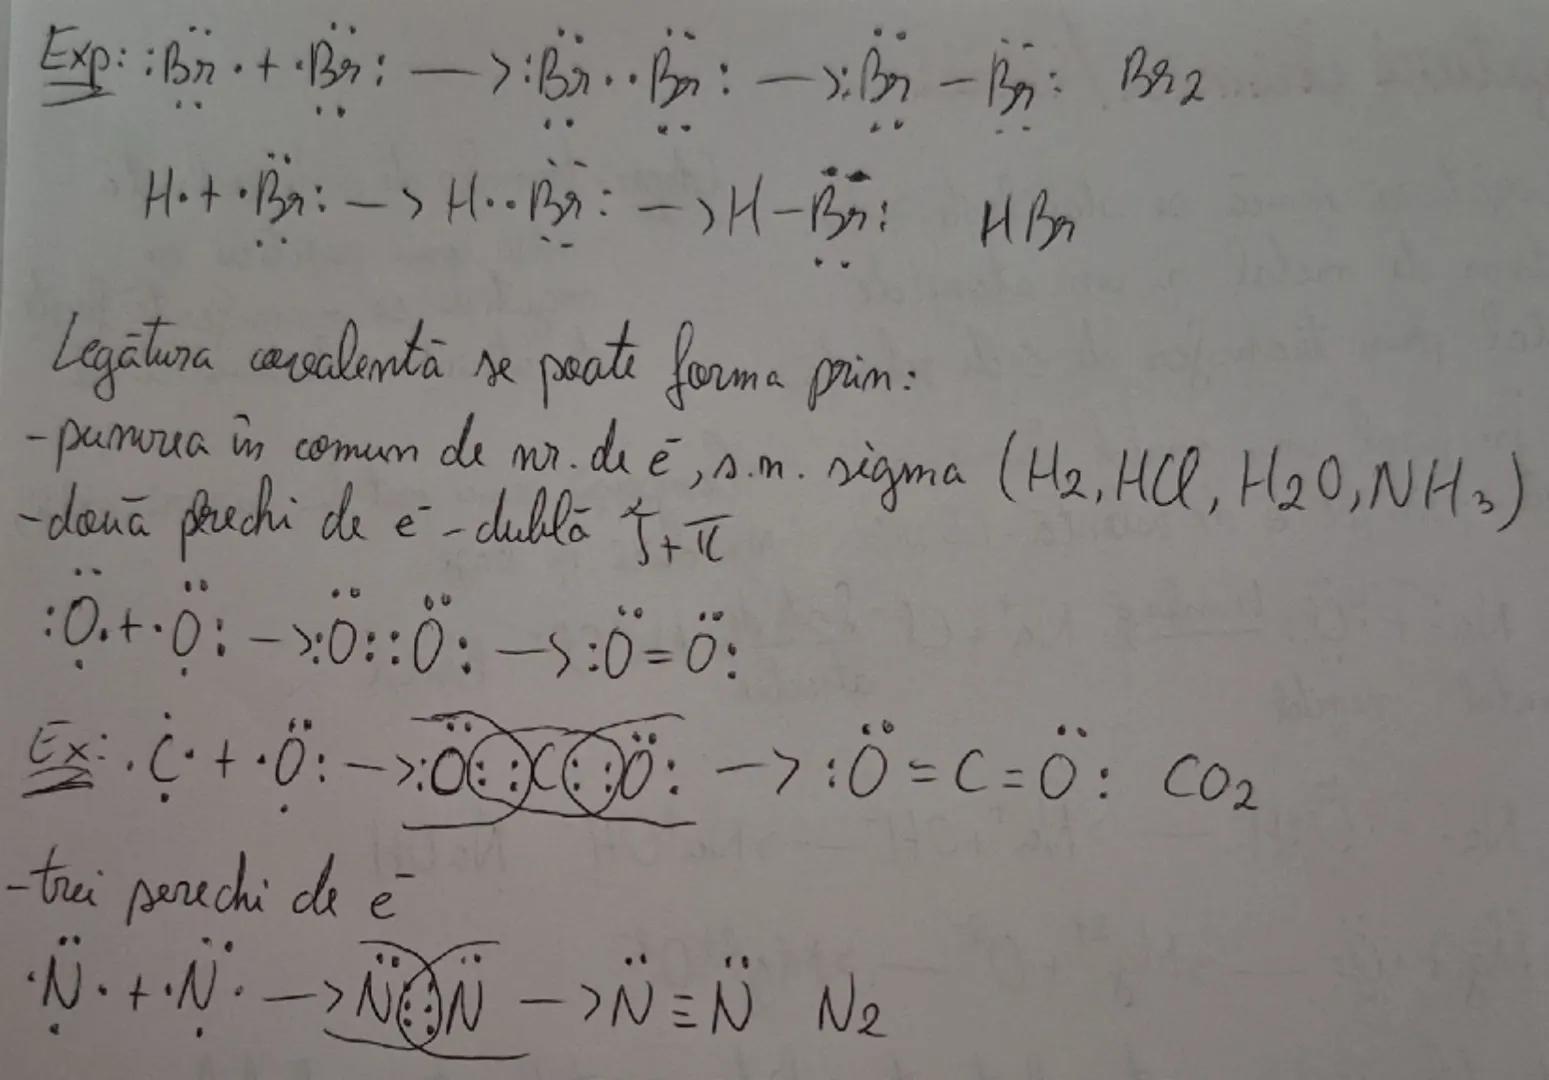 Exp: :B̈r· + ·B̈r: —> :B̈r··B̈r: —> :B̈r – B̈r: Br2
H· + ·B̈r: —> H··B̈r: —> H–B̈r: HBr
Legătura covalentă se poate forma prin:
-punerea în comun de nr. de e⁻, s.n. sigma (H2, HCl, H2O, NH3)
-două perechi de e⁻ - dublă + π
:Ö. + ·Ö: —> :Ö::Ö: —> :Ö=Ö:
Ex: ·Ċ· + ·Ö: —> :Ö::C::Ö: —> :Ö=C=Ö: CO2
-trei perechi de e⁻
·N̈· + ·N̈· —> N̈:::N̈ —> N̈≡N̈ N2